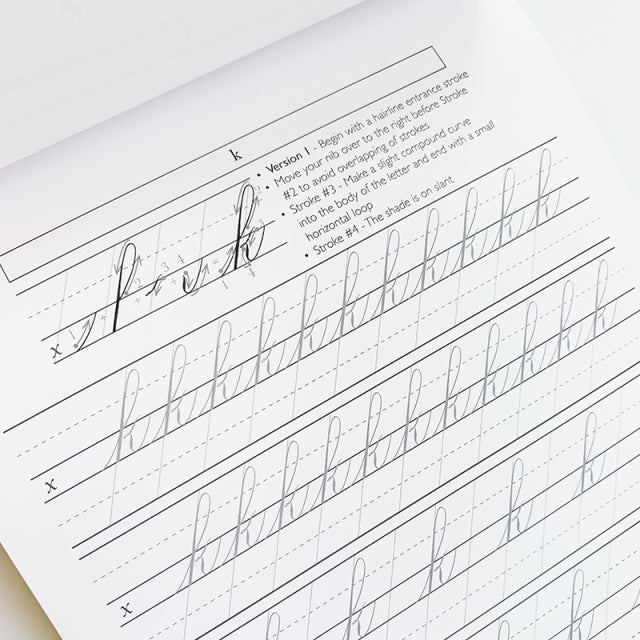 k
• Version 1 - Begin with a hairline entrance stroke
• Move your nib over to the right before Stroke
#2 to avoid overlapping of strokes
• Stroke #3 - Make a slight compound curve
into the body of the letter and end with a small
horizontal loop
• Stroke #4 - The shade is on slant
x
k k k k k k k k k k k
x
k k k k k k k k k k
x
k k k k